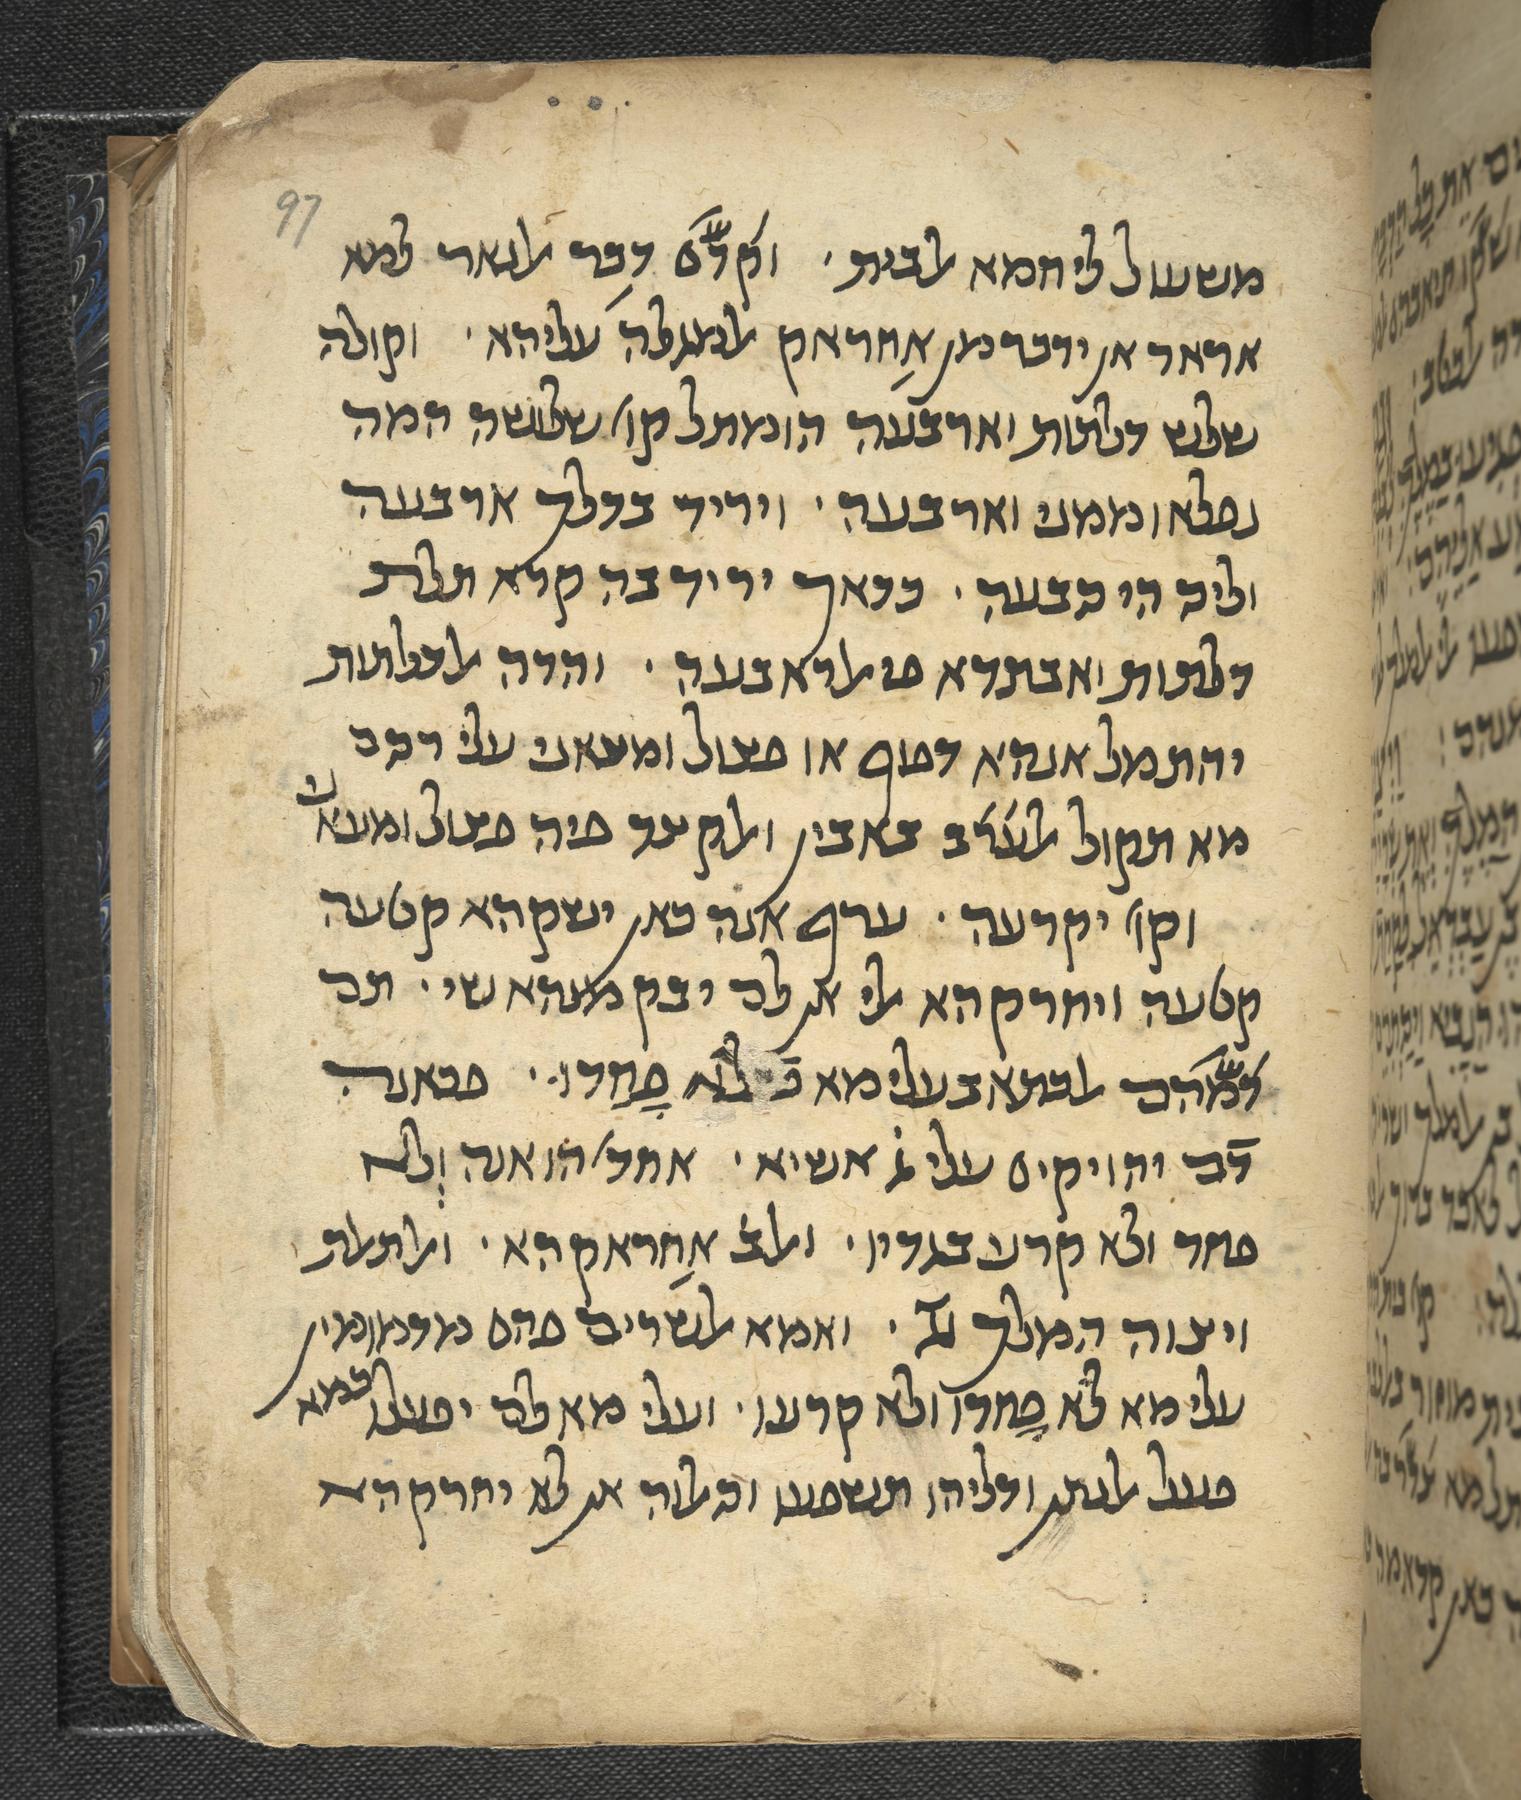 97
משעול ליחמא אלבית · וקדם דכר אלנאר למא
אראד אן ידכר מן אחראק אלמגלה עליהא · וקולה
שלש דלתות וארבעה הו מתל קו' שלושה המה
נפלאו ממני וארבעה · ויריד בדלך ארבעה
וליס הי סבעה · כדאך יריד בה קרא תלת
דלתות ואבתדא פי אלראבעה · והדה אלדלתות
יחתמל אנהא דפוף או פצול ומעאני עלי חסב
מא תקול אלערב באבין ואלקצד פיה פצול ומעאני
וקו' יקרעה · ערף אנה כאן ישקהא קטעה
קטעה ויחרקהא אלי אן לם יבק מנהא שי · תם
דמהם אלכתאב עלי מא לא פחדו · פכאנה
דם יהויקים עלי ג אשיא · אחד' הו אנה ולא
פחד ולא קרע בגדיו · ואלב אחראקהא · ואלתאלת
ויצוה המלך · ואמא אלשרים פהם מדמומין
עלי מא לא פחדו ולא קרעו · ועלי מא לם יפעלו כמא
פעל אלנתן ודליהו תשפעו וסאלוה אן לא יחרקהא